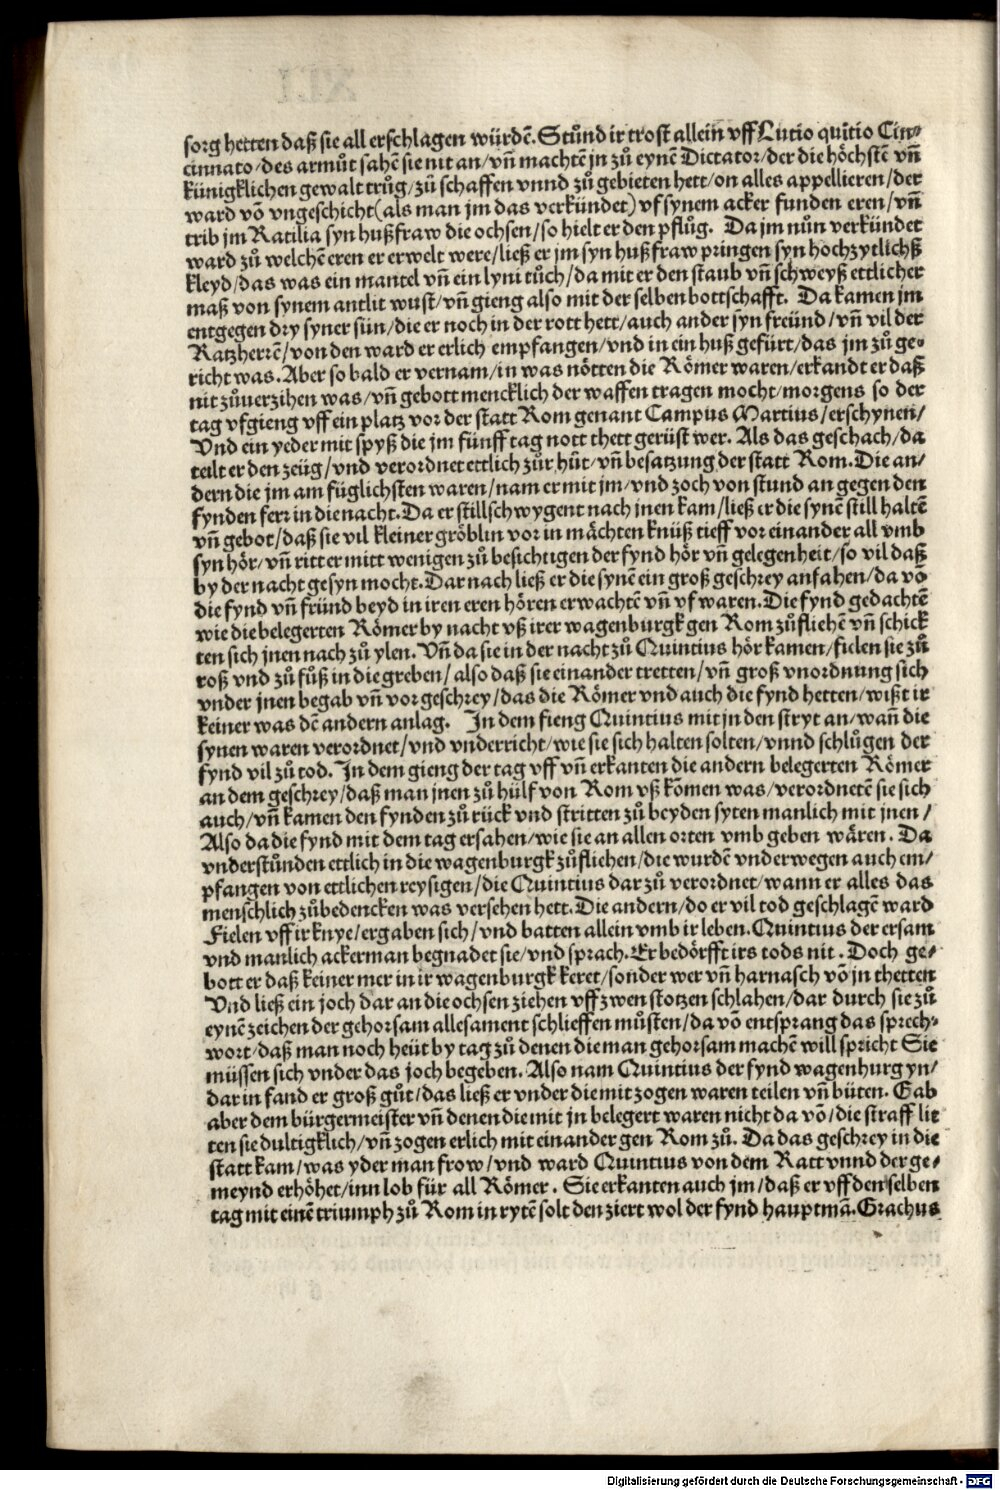 sorg hetten daß sie all erschlagen würdē. Stůnd ir trost allein vff Lutio quītio Cin⸗
cinnato/des armůt sahē sie nit an/vn̄ machtē jn zů eynē Dictator/der die höchstē vn̄
künigklichen gewalt trůg/zů schaffen vnnd zů gebieten hett/on alles appellieren/der
ward vō vngeschicht(als man jm das verkündet)vf synem acker funden eren/vn̄
trib jm Ratilia syn hußfraw die ochsen/so hielt er den pflůg. Da jm nůn verkündet
ward zů welchē eren er erwelt were/ließ er jm syn hußfraw pringen syn hochzytlichß
kleyd/das was ein mantel vn̄ ein lyni tůch/da mit er den staub vn̄ schweyß ettlicher
maß von synem antlit wust/vn̄ gieng also mit der selben bottschafft. Da kamen jm
entgegen dry syner sün/die er noch in der rott hett/auch ander syn freünd/vn̄ vil der
Ratzherrē/von den ward er erlich empfangen/vnd in ein huß gefürt/das jm zů ge⸗
richt was. Aber so bald er vernam/in was nötten die Römer waren/erkandt er daß
nit zůuerzihen was/vn̄ gebott mencklich der waffen tragen mocht/morgens so der
tag vfgieng vff ein platz vor der statt Rom genant Campus Martius/erschynen/
Vnd ein yeder mit spyß die jm fünff tag nott thett gerüst wer. Als das geschach/da
teilt er den zeüg/vnd verordnet ettlich zůr hůt/vn̄ besatzung der statt Rom. Die an/
dern die jm am füglichsten waren/nam er mit jm/vnd zoch von stund an gegen den
fynden ferr in die nacht. Da er stillschwygent nach jnen kam/ließ er die synē still haltē
vn̄ gebot/daß sie vil kleiner gröblin vor in mächten knüß tieff vor einander all vmb
syn hör/vn̄ ritt er mitt wenigen zů besichtigen der fynd hör vn̄ gelegenheit/so vil daß
by der nacht gesyn mocht. Dar nach ließ er die synē ein groß geschrey anfahen/da vō
die fynd vn̄ fründ beyd in iren eren hören erwachtē vn̄ vf waren. Die fynd gedachtē
wie die belegerten Römer by nacht vß irer wagenburgk gen Rom zůfliehē vn̄ schick
ten sich jnen nach zů ylen. Vn̄ da sie in der nacht zů Quintius hör kamen/fielen sie zů
roß vnd zů fůß in die greben/also daß sie einander tretten/vn̄ groß vnordnung sich
vnder jnen begab vn̄ vor geschrey/das die Römer vnd auch die fynd hetten/wißt ir
keiner was dē andern anlag. In dem fieng Quintius mit jn den stryt an/wan̄ die
synen waren verordnet/vnd vnderricht/wie sie sich halten solten/vnnd schlůgen der
fynd vil zů tod. In dem gieng der tag vff vn̄ erkanten die andern belegerten Römer
an dem geschrey/daß man jnen zů hülf von Rom vß kōmen was/verordnetē sie sich
auch/vn̄ kamen den fynden zů rück vnd stritten zů beyden syten manlich mit jnen/
Also da die fynd mit dem tag ersahen/wie sie an allen orten vmb geben wären. Da
vnderstůnden ettlich in die wagenburgk zůfliehen/die wurdē vnderwegen auch em/
pfangen von ettlichen reysigen/die Quintius dar zů verordnet/wann er alles das
menschlich zůbedencken was versehen hett. Die andern/do er vil tod geschlagē ward
Fielen vff ir knye/ergaben sich/vnd batten allein vmb ir leben. Quintius der ersam
vnd manlich ackerman begnadet sie/vnd sprach. Er bedörfft irs tods nit. Doch ge⸗
bott er daß keiner mer in ir wagenburgk keret/sonder wer vn̄ harnasch vō jn thetten
Vnd ließ ein joch dar an die ochsen ziehen vff zwen stotzen schlahen/dar durch sie zů
eynē zeichen der gehorsam allesament schlieffen můsten/da vō entsprang das sprech⸗
wort/daß man noch heüt by tag zů denen die man gehorsam machē will spricht Sie
müssen sich vnder das joch begeben. Also nam Quintius der fynd wagenburg yn/
dar in fand er groß gůt/das ließ er vnder die mit zogen waren teilen vn̄ büten. Gab
aber dem bürgermeister vn̄ denen die mit jn belegert waren nicht da vō/die straff lit
ten sie dultigklich/vn̄ zogen erlich mit einander gen Rom zů. Da das geschrey in die
statt kam/was yder man frow/vnd ward Quintius von dem Ratt vnnd der ge⸗
meynd erhöhet/inn lob für all Römer. Sie erkanten auch jm/daß er vff den selben
tag mit einē triumph zů Rom in rytē solt den ziert wol der fynd hauptmā. Grachus
Digitalisierung gefördert durch die Deutsche Forschungsgemeinschaft - DFG